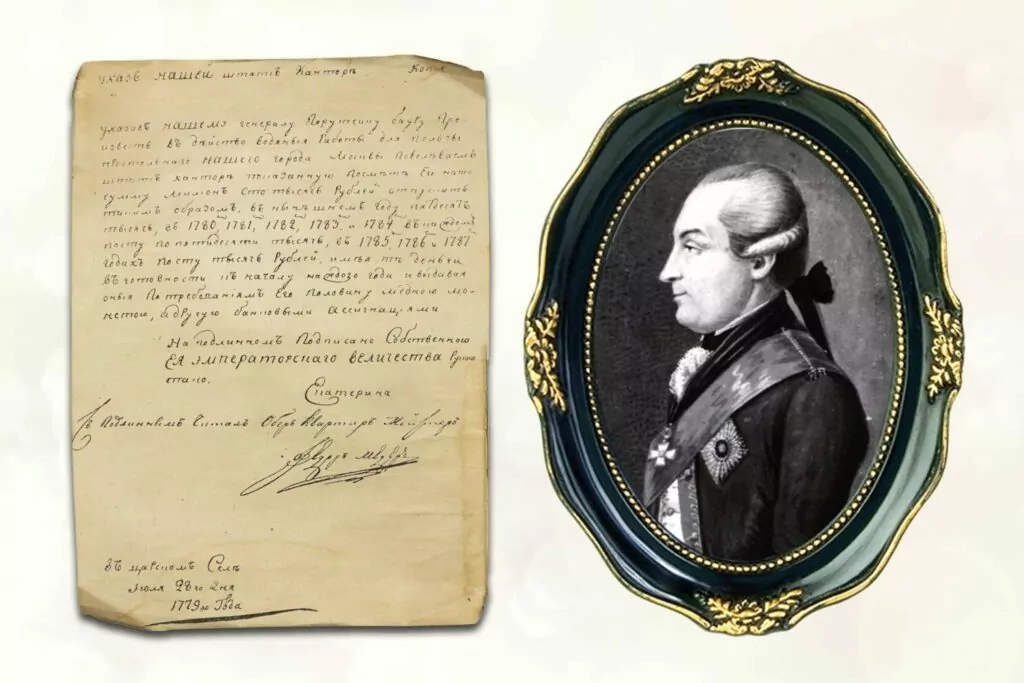 указъ нашей штатсъ Канторѣ Копія
указавъ нашему генералу Порутчику бауру Про-
известь въ дѣйство водяныя Работы для пользы
престольнаго нашего города Москвы Повелѣваемъ
штатсъ канторѣ показанную Посмѣтѣ Ево на то
сумму Милионъ Сто тысячь Рублей отпустить
такимъ образомъ, въ нынѣшнемъ году пятдесятъ
тысячь, въ 1780, 1781, 1782, 1783, и 1784
посту попятидесяти тысячь, въ 1785, 1786 и 1787
годахъ посту тысячь Рублей, имѣя ти деньги
въ готовности къ началу каждого года и выдавая
оныя По требованіямъ Его половину мѣдною мо-
нетою, адругую банковыми ассигнаціями
На подлинномъ Подписано Собственною
ЕЯ императорскаго величества Рукою
тако.
Екатерина
Съ Подлиннымъ Читалъ Оберъ Квартирмейстеръ
въ царскомъ Селѣ
Іюля 28го Дня
1779го Года